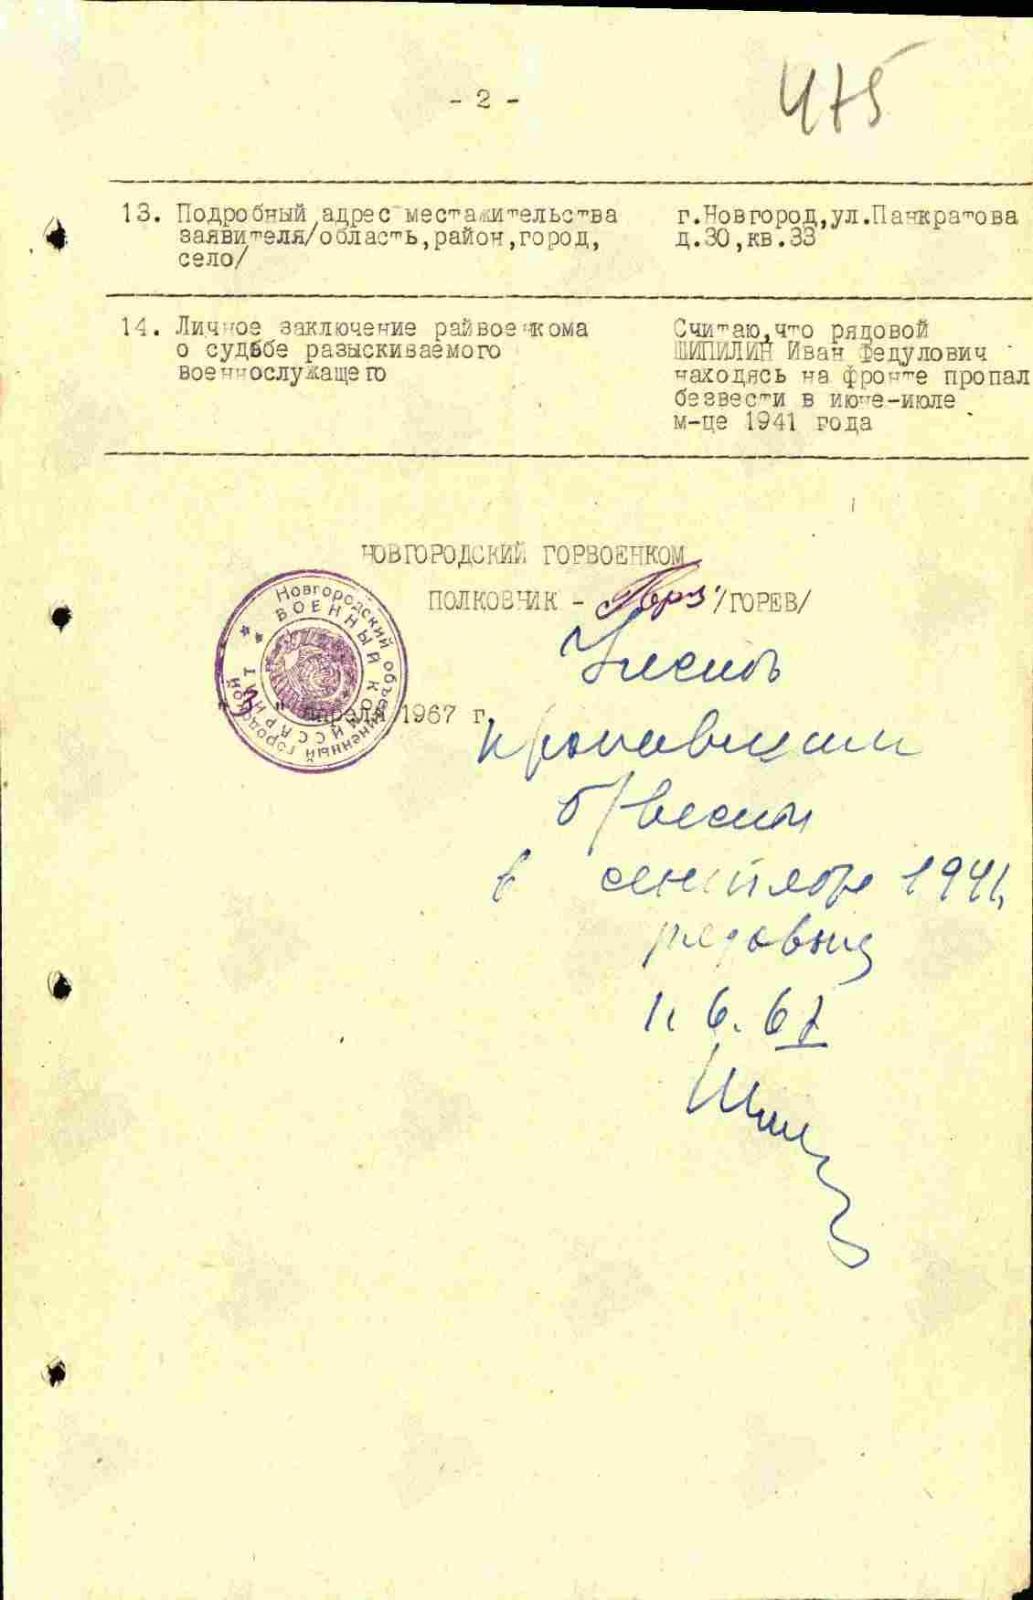 - 2 -
475
13. Подробный адрес местажительства
заявителя/область,район,город,
село/
г.Новгород,ул.Панкратова
д.30,кв.33
14. Личное заключение райвоенкома
о судьбе разыскиваемого
военнослужащего
Считаю,что рядовой
ШИПИЛИН Иван Федулович
находясь на фронте пропал
безвести в июне-июле
м-це 1941 года
НОВГОРОДСКИЙ ГОРВОЕНКОМ
ПОЛКОВНИК - /ГОРЕВ/
Новгородский объединенный городской
ВОЕННЫЙ КОМИССАРИАТ
"3" апреля 1967 г.
пропавшим
б/вести
в сентябре 1941
рядовых
1. 6. 67